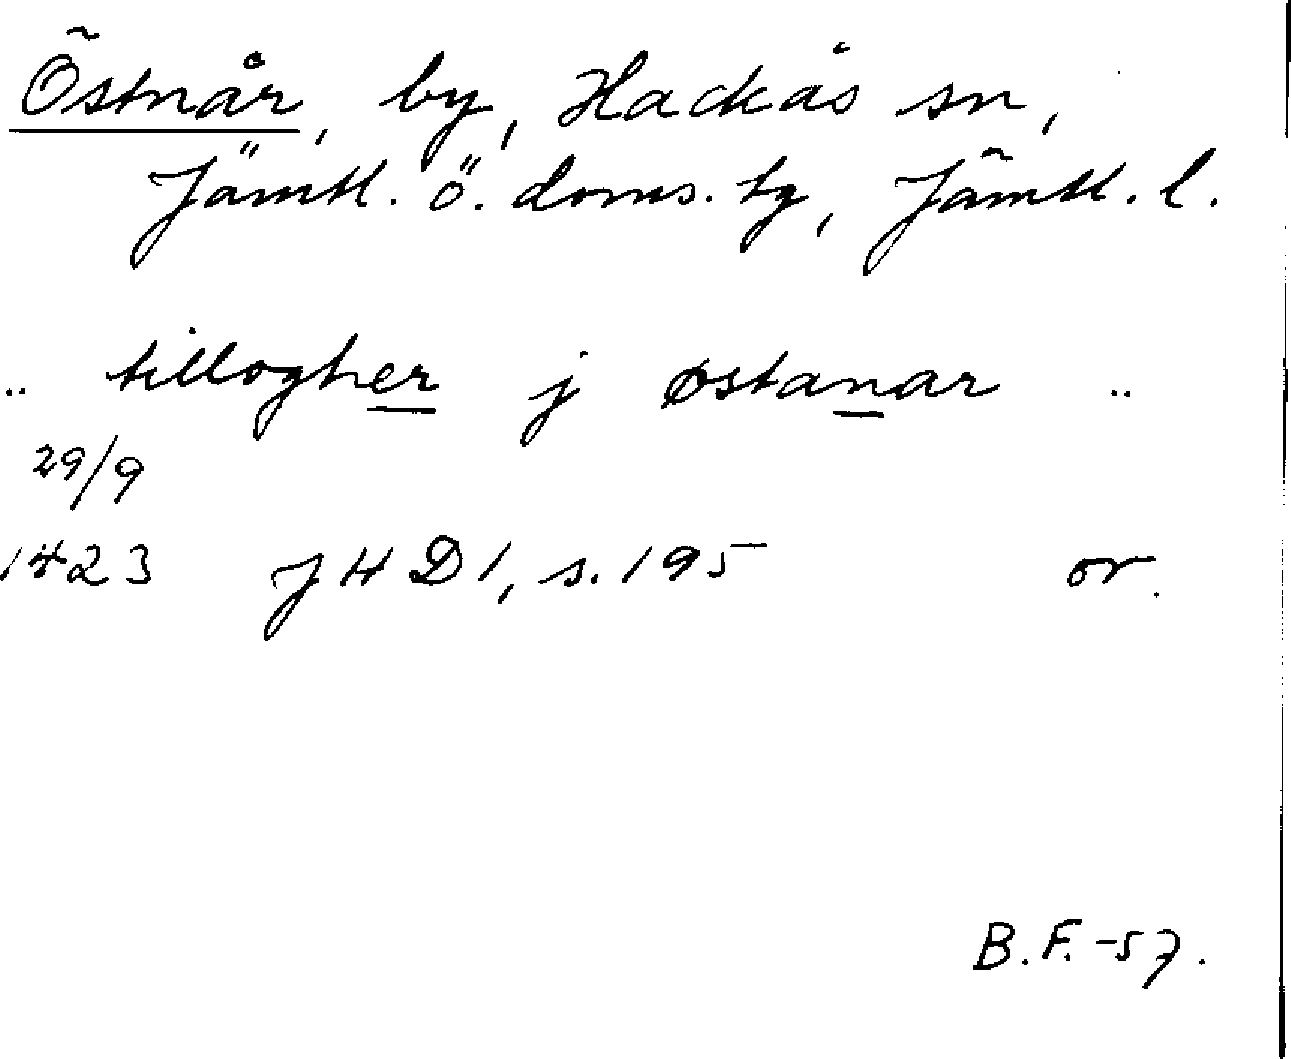 Östnår, by, Hackås sn,
Jämtl. ö. doms. tg, Jämtl. l.
.. tillogher j østanar ..
29/9
1423 JHD 1, s. 195 or.
B. F. -57.